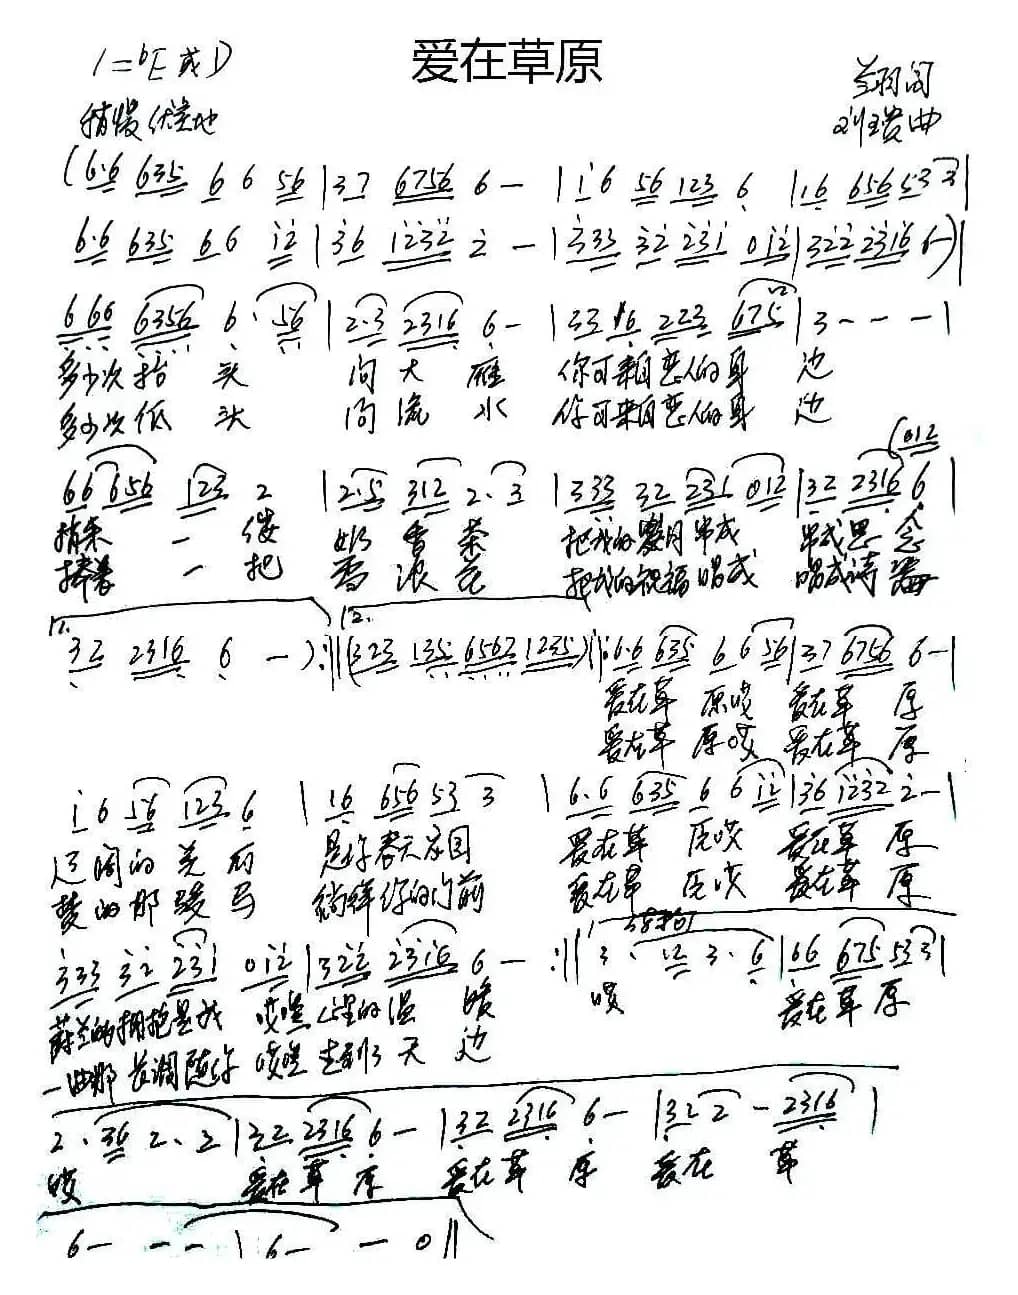 爱在草原
1=bE或D
稍慢 优美地
刘瑗曲
(6·6 635 6 6 56 | 37 6756 6 — | i 6 56 123 6 | 16 656 533
6·6 635 66 12 | 36 1232 2 — | 333 32 231 012 | 322 2316 6—) |
6 66 6356 6· 56 | 2·3 2316 6 — | 33 16 223 675 | 3 — — — |
多少次抬头 问大雁 你可来自恋人的身边
多少次低头 问流水 你可来自恋人的身边
012
66 656 123 2 | 2·5 312 2·3 | 333 32 231 012 | 32 2316 6 |
捎来一缕 奶香茶 把我的岁月串成 串成思念
捧着一把 雪浪花 把我的祝福唱成 唱成诗篇
1. 2.
32 2316 6 — ) :|| (323 135 6562 1235) ||: 6·6 635 6 6 56 | 37 6756 6 — |
爱在草原哎 爱在草原
爱在草原哎 爱在草原
i 6 56 123 6 | 16 656 53 3 | 6·6 635 6 6 12 | 36 1232 2 — |
辽阔的 是你春天家园 爱在草原哎 爱在草原
梦的那骏马 徜徉你的门前 爱在草原哎 爱在草原
333 32 231 012 | 322 2316 6 — :|| 3· 12 3· 6 | 66 675 533 |
的拥抱是我 哎嘿心里的温暖 哎 爱在草原
一曲那长调随你 哎嘿走到了天边
2· 36 2· 2 | 32 2316 6 — | 32 2316 6 — | 32 2 — 2316 |
哎 爱在草原 爱在草原 爱在草
6 — — — | 6 — — 0 ||